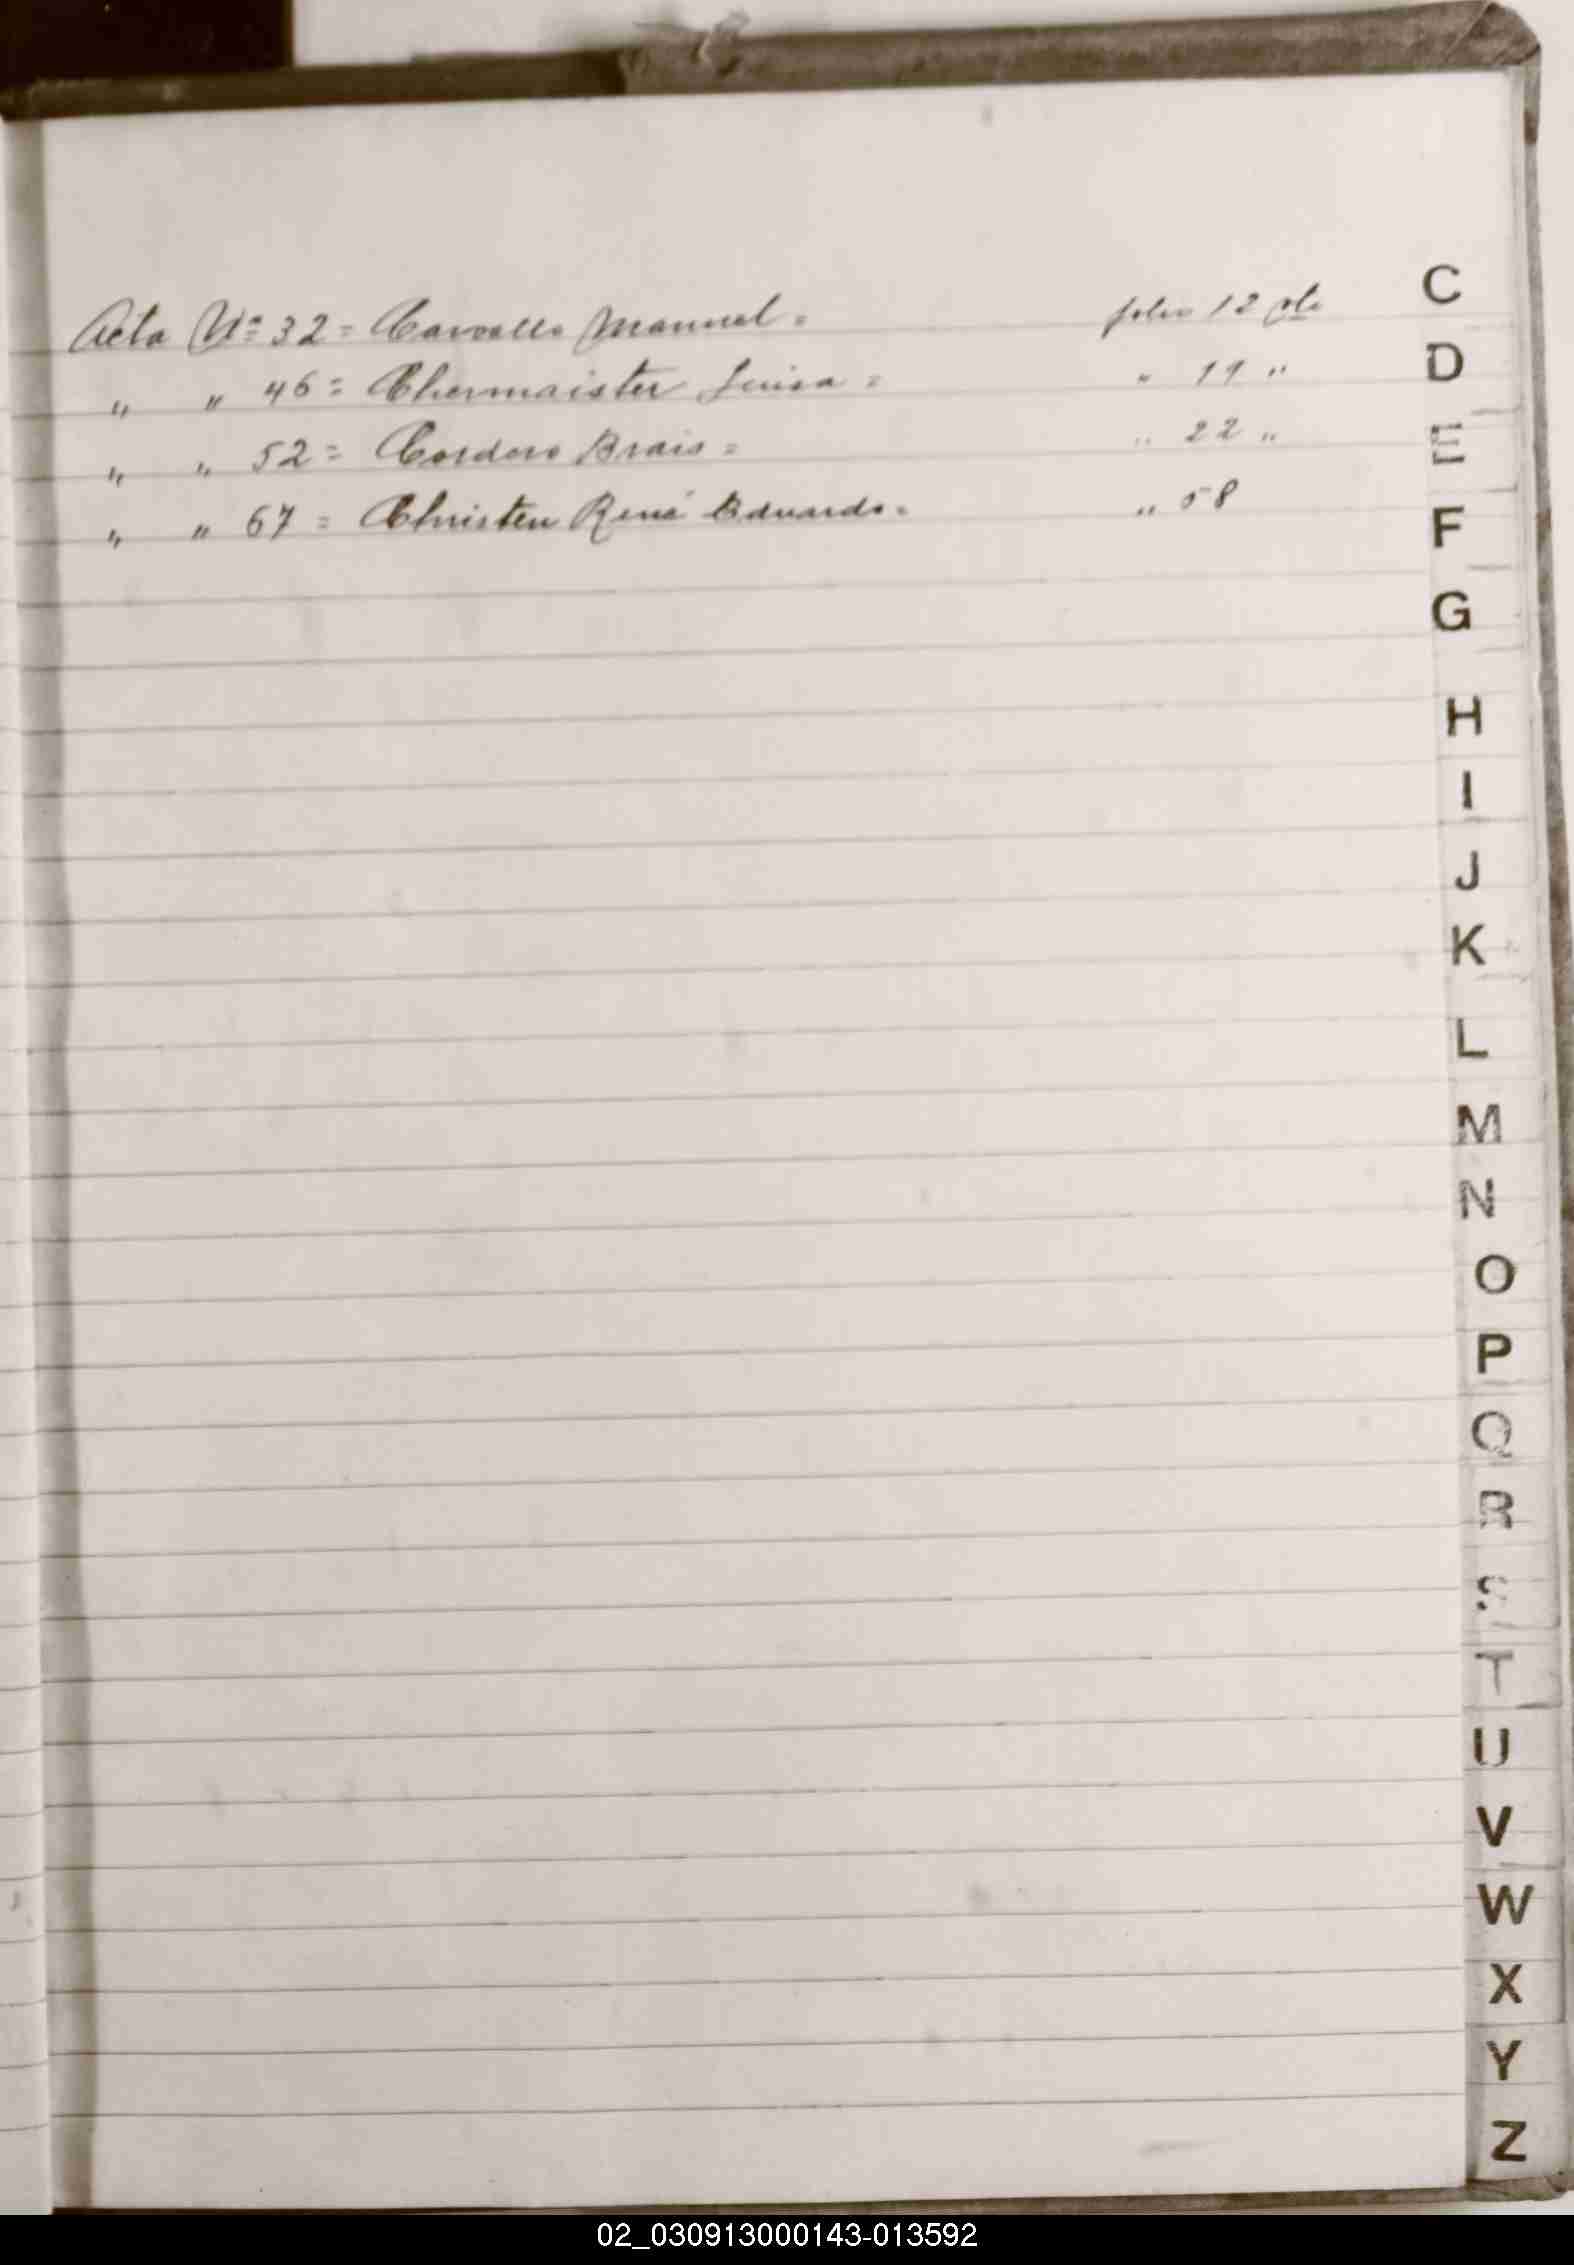 Acta Nº 32 = Carvallo Manuel = folio 12 vlo
" " 46 = Chermaister Luisa = " 19 "
" " 52 = Cordero Brais = " 22 "
" " 67 = Christen René Eduardo = " 58
C
D
E
F
G
H
I
J
K
L
M
N
O
P
Q
R
S
T
U
V
W
X
Y
Z
02_030913000143-013592